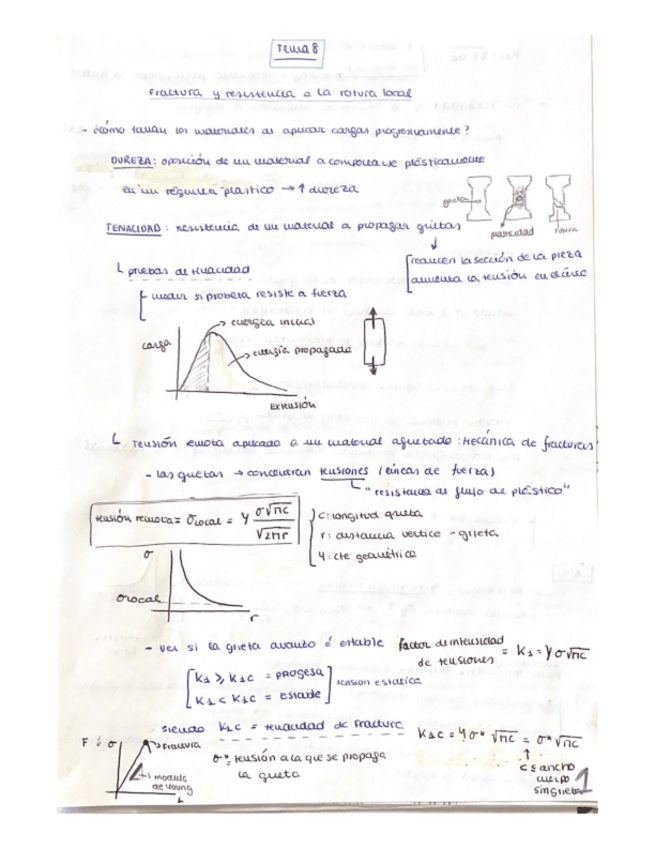 Tema 8
Fractura y resistencia a la rotura local
- ¿Cómo fallan los materiales al aplicar cargas progresivamente?
DUREZA: oposición de un material a comportarse plásticamente
en un régimen plástico → ↑ dureza
grieta
plasticidad
rotura
TENACIDAD: resistencia de un material a propagar grietas
reducen la sección de la pieza
aumenta la tensión
pruebas de tenacidad
medir si probeta resiste a fuerza
carga
energía inicial
energía propagada
Extensión
Tensión remota aplicada a un material agrietado: Mecánica de fracturas
- Las grietas → concentran tensiones (líneas de fuerza)
"resistencia al flujo de plástico"
tensión remota = σlocal = Y σ√πc / √2πr
c: longitud grieta
r: distancia vertice - grieta
Y: cte geométrica
σ
σlocal
r
- Ver si la grieta avanza ó estable
factor de intensidad de tensiones = K1 = Yσ√πc
K1 ≥ K1c = progesa
K1 < K1c = Estable
tension estática
siendo K1c = tenacidad de fractura
K1c = Yσ* √πc = σ* √πc
F ó σ
Fractura
modulo de Young
L
σ* = tensión a la que se propaga
la grieta
c ≤ ancho
cuerpo
sin grieta
1